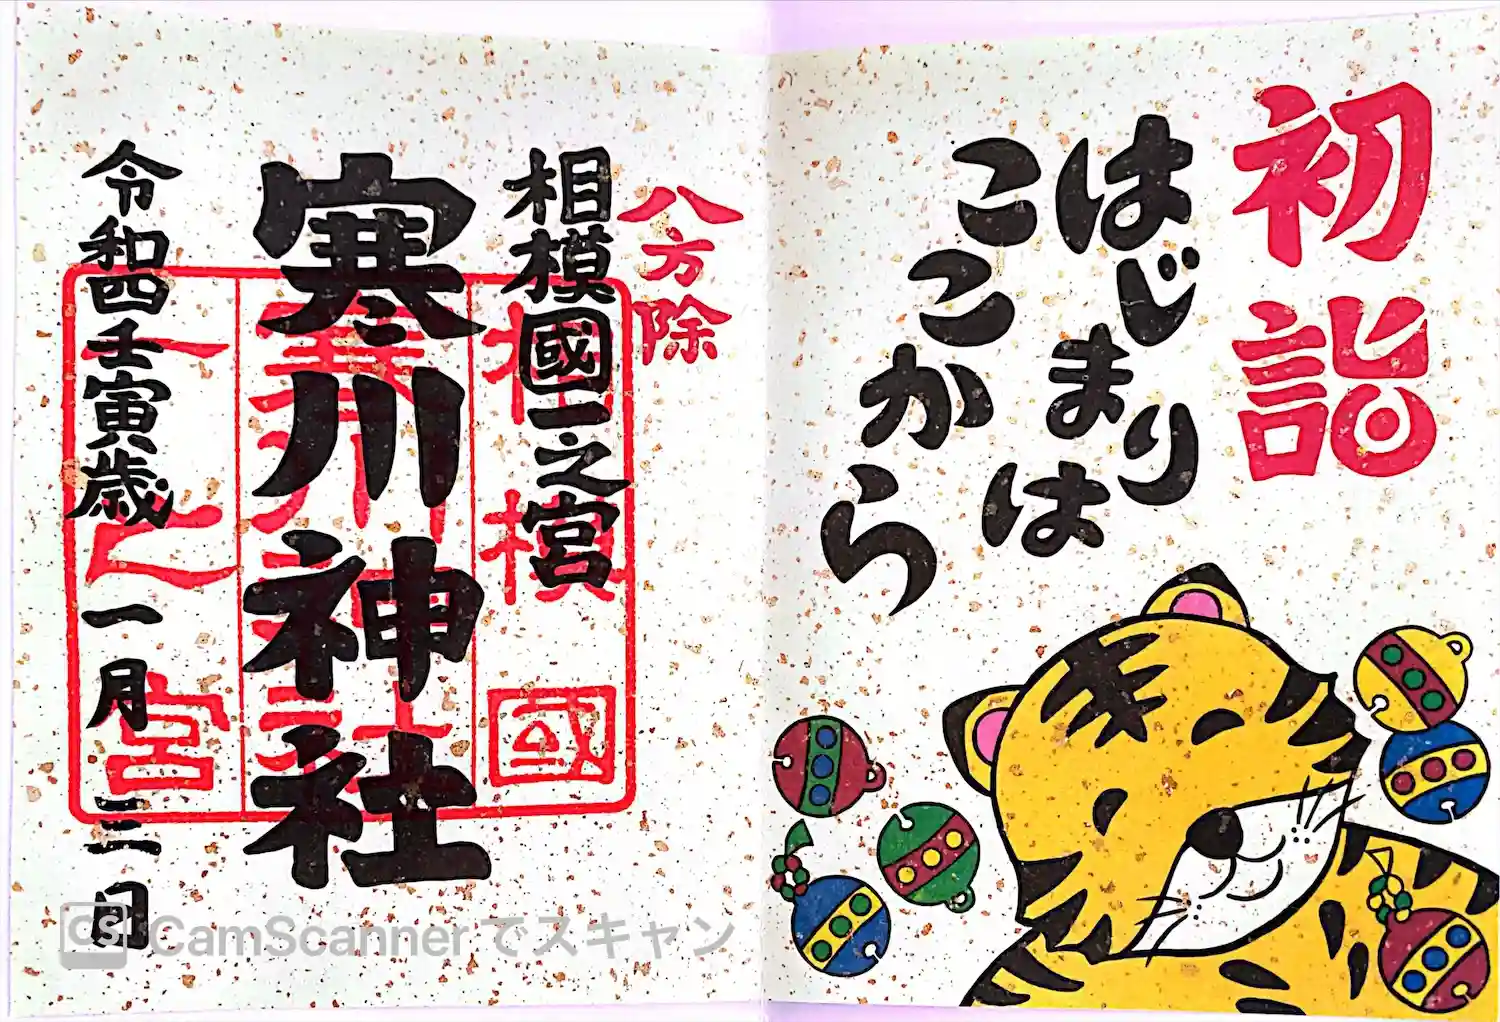 初詣
はじまりは
ここから
八方除
相模國一之宮
寒川神社
令和四壬寅歳一月三日
相模國
寒川神社
一之宮
CS CamScannerでスキャン